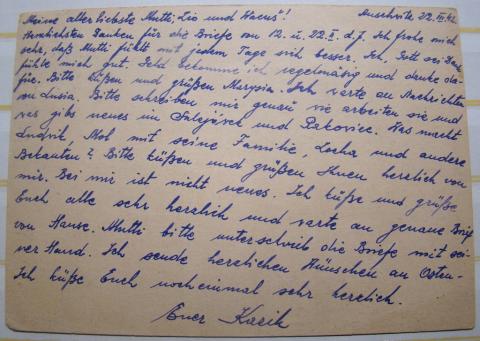 Meine allerliebste Mutti, Lio und Haens! Auschwitz 22.III.42
Herzlichsten Danken für die Briefe von 12. u. 22.II. d.J. Ich frohe mich
sehr, daß Mutti fühlt mit jedem Tage sich besser. Ich, Gott sei Dank
fühle mich gut. Geld bekomme ich regelmäsig und danke da-
für. Bitte küßen und grüßen Marysia. Ich warte an Nachrichten
von Lusia. Bitte schreiben mir genau wie arbeiten sie und
was gibs neues im und Rakowiec. Was macht
Ludwik, Mol mit seine Familie, Locha und andere
Bekanten? Bitte küßen und grüßen Ihnen herzlich von
mir. Bei mir ist nicht neues. Ich küße und grüße
Euch alle sehr herzlich und warte an genaue Brief
von Hause. Mutti bitte unterschreib die Briefe mit sei-
ner Hand. Ich sende herzlichen Wünschen an Osten-
Ich küße Euch noch einmal sehr herzlich.
Euer Kazik